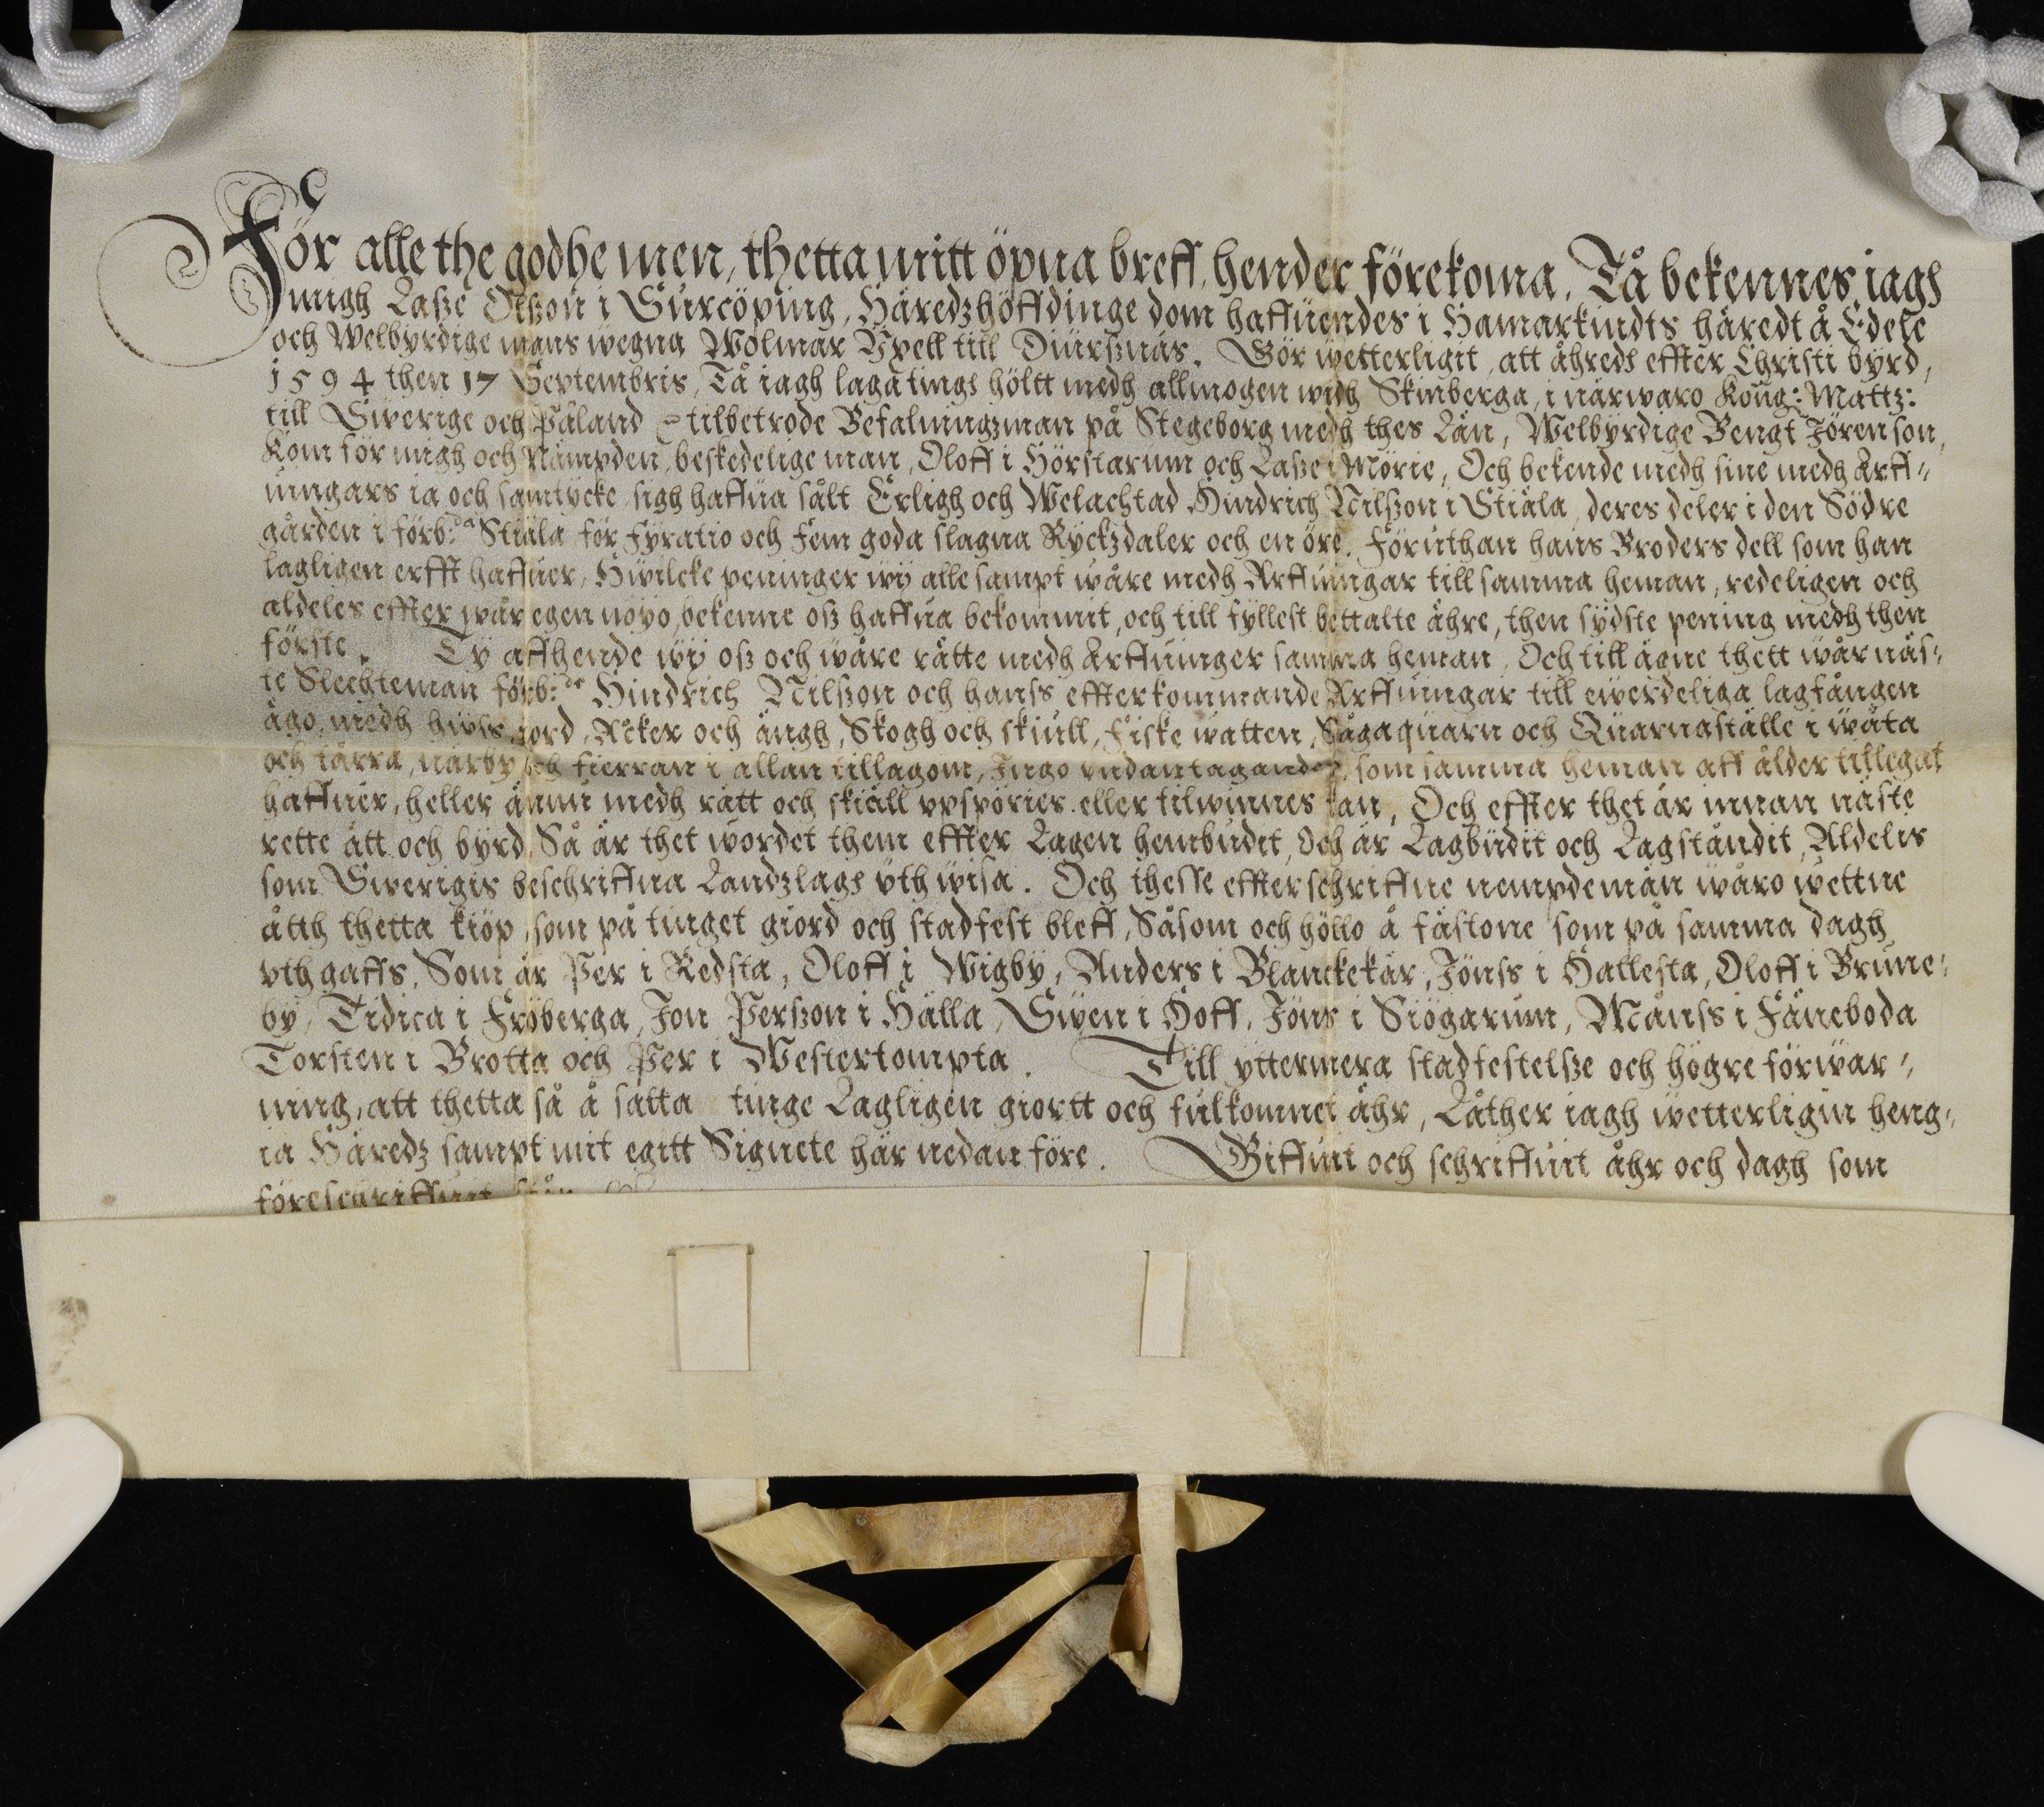 För alle the godhe men, thetta mitt öpna breff, hender förekoma, Tå bekennes iagh
migh Lasze Olszon i Surcöping, Häredzhöffdinge dom haffuendes i Hamarkindts häredt å Edele
och Welbyrdige mans wegna Wolmar Yxell till Diursznäs. Gör wetterligit, att åhreds effter Christi byrd,
1594 then 17 Septembris, Tå iagh laga tings höltt medh allmogen widh Skinberga, i närwaro Kong: Mattz:
till Swerige och Påland &c tilbetrode Befalningzman på Stegeborg medh thes Län, Welbyrdige Bengt Jörenson,
Kom för migh och Nämpden, beskedelige män, Oloff i Hörstarum och Lasze i Mörie, Och bekende medh sine medh Arff-
uingars ia och samtycke sigh haffua sålt Erligh och Welachtad Hindrich Nilszon i Stiäla, deres deler i den Södre
gården i förb:da Stiäla för Fyratio och Fem goda slagna Ryckzdaler och en öre. Föruthan hans Broders dell som han
lagligen erfft haffuer, Hwilcke peninger wij alle sampt wåre medh Arffuingar till samma heman, redeligen och
aldeles effter wår egen nöyo bekenne osz haffua bekommit, och till fyllest bettalte ähre, then sydste pening medh then
förste. Ty affhende wij osz och wåre rätte medh Arffuinger samma heman, Och till ägne thett wår näs-
te Slechteman förb:de Hindrich Nilszon och hanss effterkommande Arffuingar till ewerdeliga lagfången
ägo, medh hwss, jord, Åcker och ängh, Skogh och skiull, Fiske watten, Sågaquarn och Quarnaställe i wåta
och tårra, närby och fierran i allan tillagom, Ingo vndantagandes, som samma heman aff ålder tillegat
haffuer, heller ännu medh rätt och skiäll vpspöries eller tilwinnes kan, Och effter thet är innan näste
rette ätt och byrd, Så är thet wordet them effter Lagen hembudet, Och är Lagbudit och Lagståndit, Aldeles
som Swerigis beschriffna Landzlagh vth wisa. Och thesse effterschriffne nempdemän wåro wettne
åtth thetta kiöp, som på tinget giord och stadfest bleff, Såsom och höllo å fästone som på samma dagh
vthgaffs, Som är Per i Redsta, Oloff i Wigby, Anders i Blanckekär, Jönss i Hällesta, Oloff i Brune-
by, Tidica i Fröberga, Jon Perszon i Hälla, Swen i Hoff, Jöns i Siögarum, Månss i Fåneboda
Torsten i Brotta och Per i Westertompta. Till yttermera stadfestelsze och högre förwar-
ning, att thetta så å sätta tinge Lagligen giortt och fulkomnet ähr, Låther iagh wetterligin heng-
ia Häredz sampt mit egitt Signete här nedan före. Giffuit och schriffuit åhr och dagh som
föreschriffuit står